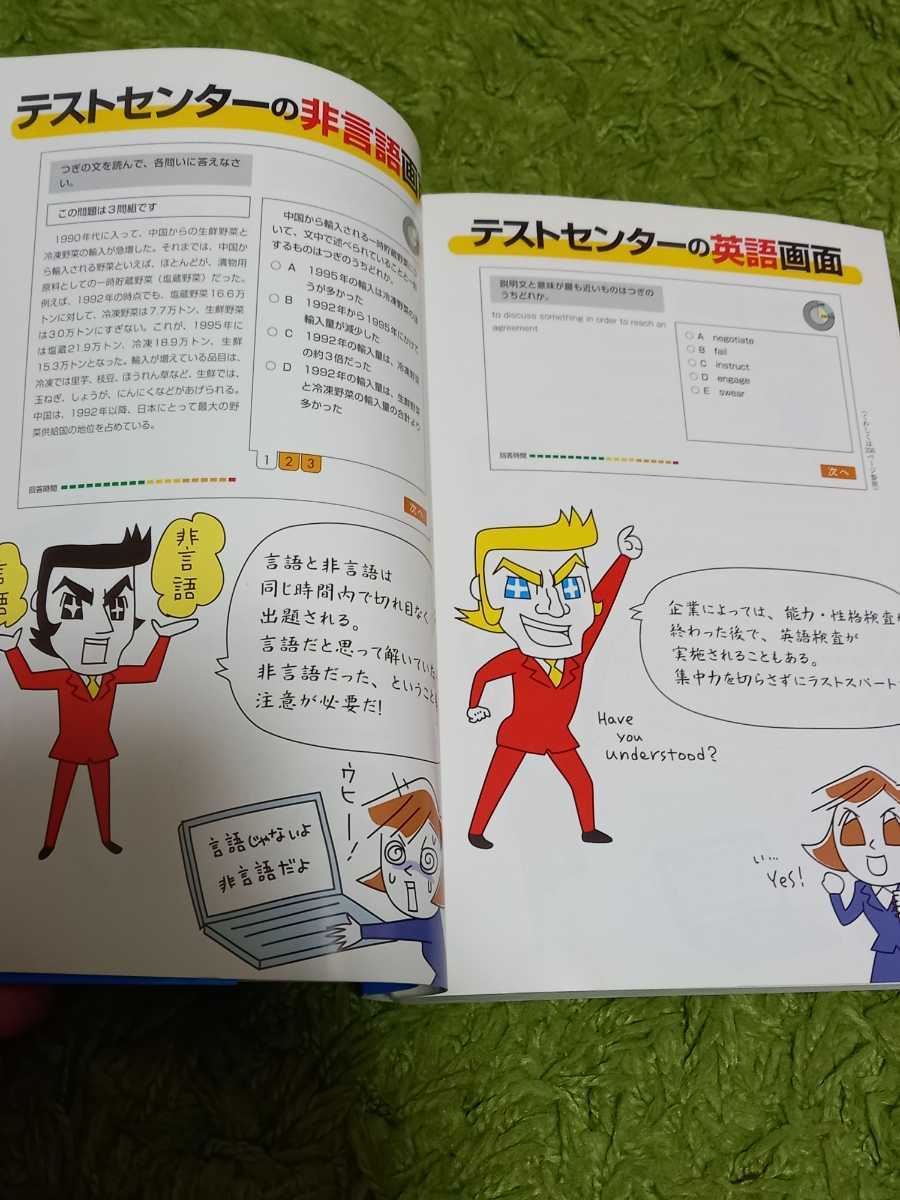 テストセンターの非言語画
つぎの文を読んで、各問いに答えなさ
い。
この問題は3問組です
1990年代に入って、中国からの生鮮野菜と
冷凍野菜の輸入が急増した。それまでは、中国か
ら輸入される野菜といえば、ほとんどが、漬物用
原料としての一時貯蔵野菜（塩蔵野菜）だった。
例えば、1992年の時点でも、塩蔵野菜16.6万
トンに対して、冷凍野菜は7.7万トン、生鮮野菜
は3.0万トンにすぎない。これが、1995年に
は塩蔵21.9万トン、冷凍18.9万トン、生鮮
15.3万トンとなった。輸入が増えている品目は、
冷凍では里芋、枝豆、ほうれん草など、生鮮では、
玉ねぎ、しょうが、にんにくなどがあげられる。
中国は、1992年以降、日本にとって最大の野
菜供給国の地位を占めている。
中国から輸入される一時貯蔵野菜につ
いて、文中で述べられていることと一致
するものはつぎのうちどれか。
A 1995年の輸入は冷凍野菜のほ
うが多かった
B 1992年から1995年にかけて
輸入量が減少した
C 1992年の輸入量は、冷凍野菜
の約3倍だった
D 1992年の輸入量は、生鮮野菜
と冷凍野菜の輸入量の合計より
多かった
1 2 3
回答時間
次へ
言語
非言語
言語と非言語は
同じ時間内で切れ目なく
出題される。
言語だと思って解いていた
非言語だった、ということも
注意が必要だ!
ウヒー!
言語じゃないよ
非言語だよ
テストセンターの英語画面
説明文と意味が最も近いものはつぎの
うちどれか。
to discuss something in order to reach an
agreement
A negotiate
B fail
C instruct
D engage
E swear
回答時間
次へ
企業によっては、能力・性格検査が
終わった後で、英語検査が
実施されることもある。
集中力を切らさずにラストスパート
Have
you
understood?
い…
Yes!